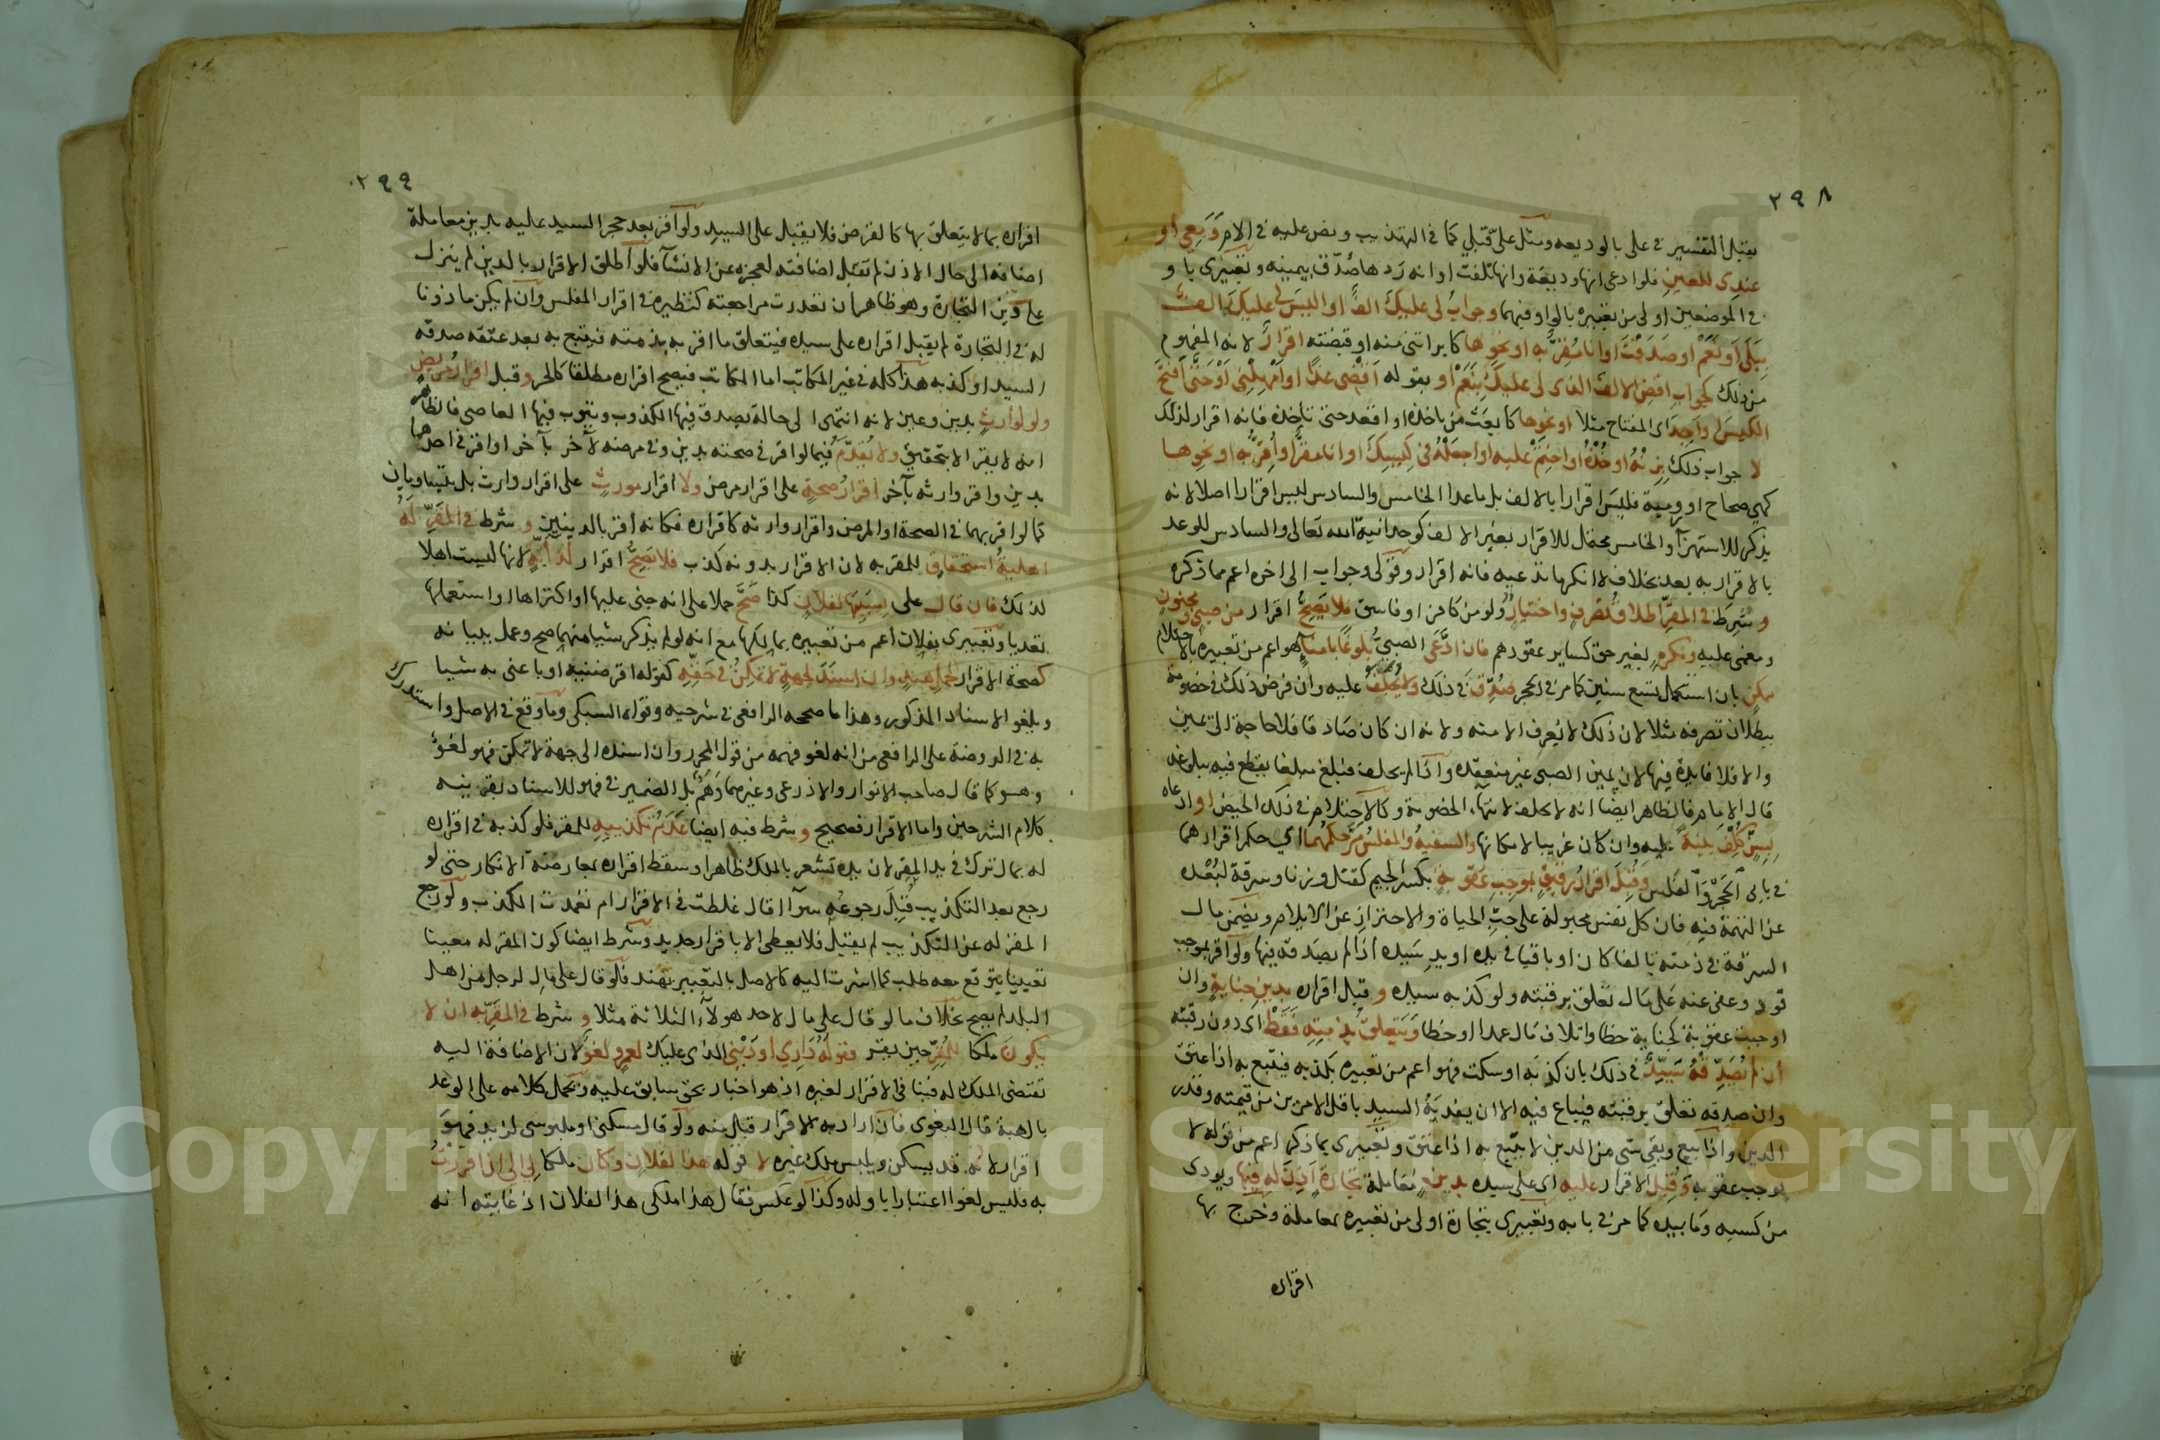 ٢٩٨
يقبل التفسير في علي بالوديعه ومثل علي قبلي كما في التهذيب ونص عليه في الام ومعي او
عندي للعين فلو ادعى انها وديعة وانها تلفت او انه ردها صدق بيمينه وتعبيري با و
في الموضعين اولى من تعبيره بالواو فيهما وجواب لي عليك الف او اليس لي عليك الف
ببلى او نعم او صدقت او انا مقر به او نحوها كابراتني منه او قبضته اقرار لانه المفهوم
من ذلك كجواب اقض الالف الذي لي عليك بنعم او بقوله اقضي غدا او امهلني او حتى افتح
الكيس او اجد اي المفتاح مثلا او نحوها كابعث من ياخذه او اقعد حتى تاخذه فانه اقرار لذلك
لا جواب ذلك بزنه او خذه او اختم عليه او اجعله في كيسك او انا مقر او اقر به او نحوها
كهي صحاح او رومية فليس اقرارا بالالف بل ما عدا الخامس والسادس ليس اقرارا اصلا لانه
يذكر للاستهزآ والخامس محتمل للاقرار بغير الالف كوحدانية الله تعالى والسادس للوعد
بالاقرار به بعد بخلاف لا انكر ما تدعيه فانه اقرار وقولي وجواب الى اخره اعم مما ذكره
وشرط في المقر اطلاق تصرف واختيار ولو من كافر او فاسق فلا يصح اقرار من صبي ومجنون
ومغمى عليه ومكره بغير حق كساير عقودهم فان ادعى الصبي بلوغا بامناء هو اعم من تعبيره بالاحتلام
ممكن بان استكمل تسع سنين كما مر في الحجر صدق في ذلك ولا يحلف عليه وان فرض ذلك في خصومة
ببطلان تصرفه مثلا لان ذلك لا يعرف الا منه ولانه ان كان صادقا فلا حاجة الى يمين
والا فلا فايدة فيها لان يمين الصبي غير منعقده واذا لم يحلف فبلغ مبلغا يقطع فيه ببلوغه
قال الامام فالظاهر ايضا انه لا يحلف لانتهاء الخصومة وكالاحتلام في ذلك الحيض او ادعاه
بسن كلف بينة عليه وان كان غريبا لامكانها والسفيه والمفلس مر حكمهما اي حكم اقرارهما
في بابى الحجر والفلس وقبل اقرار رقيق بموجب عقوبة بكسر الجيم كقتل وزنا وسرقة لبعده
عن التهمة فيه فان كل نفس مجبولة على حب الحياة والاحتراز عن الايلام ويضمن مال
السرقة في ذمته تالفا كان او باقيا في يده او يد سيده اذا لم يصدقه فيها ولو اقر بموجب
قود وعفى عنه على مال تعلق برقبته ولو كذبه سيده وقبل اقراره بدين جناية وان
اوجبت عقوبة كجناية خطا واتلاف مال عمدا او خطا ويتعلق بذمته فقط اي دون رقبته
ان لم يصدقه سيده في ذلك بان كذبه او سكت فهو اعم من تعبيره بكذبه فيتبع به اذا عتق
وان صدقه تعلق برقبته فيباع فيه الا ان يفديه السيد باقل الامرين من قيمته وقدر
الدين واذا بيع وبقي شي من الدين لا يتبع به اذا عتق وتعبيري بما ذكر اعم من قوله لا
يوجب عقوبة وقبل الاقرار عليه اي على سيده بدين معاملة تجارة اذن له فيها ويودى
من كسبه وما بيده كما مر في بابه وتعبيري بتجارة اولى من تعبيره بمعاملة وخرج بها
اقراره
٢٩٩
اقراره بما لا يتعلق بها كالقرض فلا يقبل على السيد ولو اقر بعد حجر السيد عليه بدين معاملة
اضافه الى حال الاذن لم تقبل اضافته لعجزه عن الانشآ فلو اطلق الاقرار بالدين لم ينزل
على دين التجارة وهو ظاهر ان تعذرت مراجعته كنظيره في اقرار المفلس وان لم يكن ماذونا
له في التجارة لم يقبل اقراره على سيده فيتعلق ما اقر به بذمته فيتبع به بعد عتقه صدقه
السيد او كذبه هذا كله في غير المكاتب اما المكاتب فيصح اقراره مطلقا كالحر وقبل اقرار مريض
ولو لوارث بدين وعين لانه انتهى الى حالة يصدق فيها الكذوب ويتوب فيها العاصي فالظاهر
انه لا يقر الا بتحقيق ولا يقدم فيما لو اقر في صحته بدين وفي مرضه لآخر بآخر او اقر في احدهما
بدين واقر وارثه بآخر اقرار صحة على اقرار مرض ولا اقرار مورث على اقرار وارث بل يتساويان
كما لو اقر بهما في الصحة او المرض واقرار وارثه كاقراره فكانه اقر بالدينين وشرط في المقر له
اهلية استحقاق للمقر به لان الاقرار بدونه كذب فلا يصح اقرار لدابة لانها ليست اهلا
لذلك فان قال علي بسببها لفلان كذا صح حملا على انه جنى عليها او اكتراها او استعملها
تعديا وتعبيري بفلان اعم من تعبيره بمالكها مع انه لو لم يذكر شيا منهما صح وعمل ببيانه
كصحة الاقرار لحمل هند وان اسند لجهة لا تمكن في حقه كقوله اقرضنيه او باعني به شيا
ويلغو الاسناد المذكور وهذا ما صححه الرافعي في شرحيه وقواه السبكي وما وقع في الاصل واستدرك
به في الروضة على الرافعي من انه لغو فهمه من قول المحرر وان اسنده الى جهة لا تمكن فهو لغو
وهو كما قال صاحب الانوار والاذرعي وغيرهما وهم بل الضمير في فهو للاسناد بقرينة
كلام الشرحين واما الاقرار فصحيح وشرط فيه ايضا عدم تكذيبه للمقر فلو كذبه في اقراره
له بمال ترك في يد المقر لان يده تشعر بالملك ظاهرا وسقط اقراره بمعارضة الانكار حتى لو
رجع بعد التكذيب قبل رجوعه سوآ اقال غلطت في الاقرار ام تعمدت الكذب ولو رجع
المقر له عن التكذيب لم يقبل فلا يعطى الا باقرار جديد وشرط ايضا كون المقر له معينا
تعيينا يتوقع معه طلب كما اشرت اليه كالاصل بالتعبير بهند فلو قال علي مال لرجل من اهل
البلد لم يصح بخلاف ما لو قال علي مال لاحد هولآء الثلاثة مثلا وشرط في المقر به ان لا
يكون ملكا للمقر حين يقر فقوله داري او ديني الذي عليك لعمرو لغو لان الاضافة اليه
تقتضي الملك له فينافي الاقرار لغيره اذ هو اخبار بحق سابق عليه ويحمل كلامه على الوعد
بالهبة قال البغوي فان اراد به الاقرار قبل منه ولو قال مسكني او ملبوسي لزيد فهو
اقرار لانه قد يسكن ويلبس ملك غيره لا قوله هذا لفلان وكان ملكا لي الى ان اقررت
به فليس لغوا اعتبارا باوله وكذا لو عكس فقال هذا ملكي هذا لفلان اذ غايته انه
Copyright © King Saud University